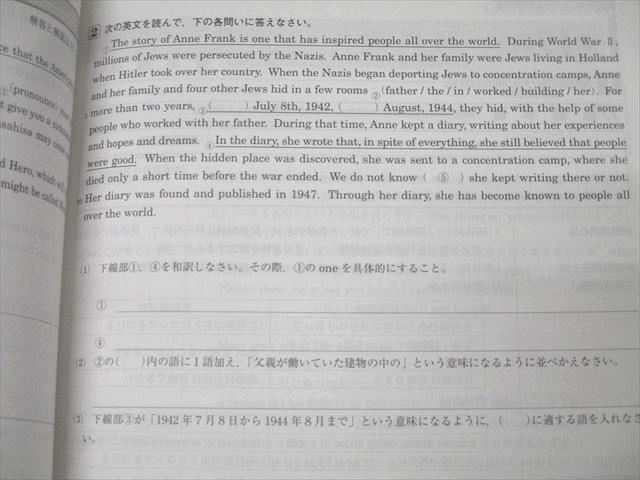 解答と解説は
2 次の英文を読んで，下の各問いに答えなさい。
①The story of Anne Frank is one that has inspired people all over the world. During World War Ⅱ,
millions of Jews were persecuted by the Nazis. Anne Frank and her family were Jews living in Holland
when Hitler took over her country. When the Nazis began deporting Jews to concentration camps, Anne
and her family and four other Jews hid in a few rooms ②(father / the / in / worked / building / her). For
more than two years, ③( ) July 8th, 1942, ( ) August, 1944, they hid, with the help of some
people who worked with her father. During that time, Anne kept a diary, writing about her experiences
and hopes and dreams. ④In the diary, she wrote that, in spite of everything, she still believed that people
were good. When the hidden place was discovered, she was sent to a concentration camp, where she
died only a short time before the war ended. We do not know ( ⑤ ) she kept writing there or not.
Her diary was found and published in 1947. Through her diary, she has become known to people all
over the world.
(1) 下線部①，④を和訳しなさい。その際，①の one を具体的にすること。
①
④
(2) ②の( )内の語に1語加え，「父親が働いていた建物の中の」という意味になるように並べかえなさい。
(3) 下線部③が「1942年7月8日から1944年8月まで」という意味になるように，( )に適する語を入れなさ
い。
ce that the American
②(pronounce: your
t give you a nickname
asahisa may
d Hero, which
might be called